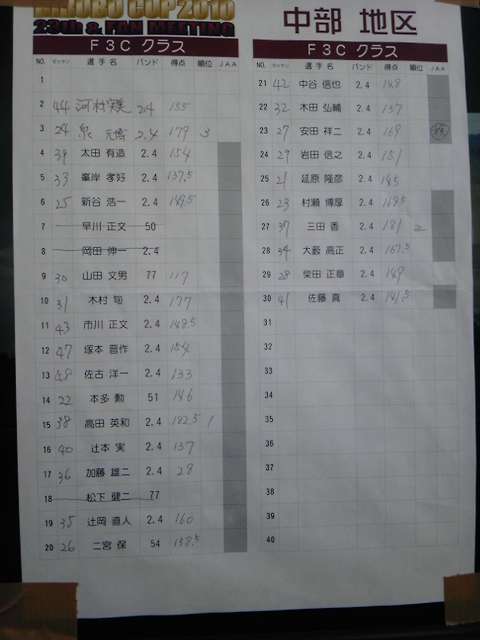 CUP 2010
23th & FAN MEETING
中部 地区
F3C クラス
NO. 選手名 バンド 得点 順位 JAA
1
2 44 河村 2.4 155
3 24 泉 2.4 179 3
4 39 太田 有造 2.4 154
5 33 峯岸 孝好 2.4 137.5
6 25 新谷 浩一 2.4 149.5
7 早川 正文 50
8 岡田 伸一 2.4
9 30 山田 文男 77 117
10 31 木村 2.4 177
11 43 市川 正文 2.4 148.5
12 47 塚本 晋作 2.4 154
13 佐古 洋一 2.4 133
14 22 本多 勲 51 146
15 38 高田 英和 2.4 182.5 1
16 40 辻本 実 2.4 137
17 36 加藤 雄二 2.4 28
18 松下 健二 77
19 35 辻岡 直人 2.4 160
20 26 二宮 保 54 138.5
F3C クラス
NO. 選手名 バンド 得点 順位 JAA
21 42 中谷 信也 2.4 148
22 32 木田 弘輔 2.4 137
23 27 安田 祥二 2.4 169
24 29 岩田 信之 2.4 151
25 21 延原 隆彦 2.4 145
26 23 村瀬 博厚 2.4 169.5
27 37 三田 香 2.4 181 2
28 34 大藪 高正 2.4 167.5
29 28 柴田 正章 2.4 149
30 41 佐藤 真 2.4 141.5
31
32
33
34
35
36
37
38
39
40